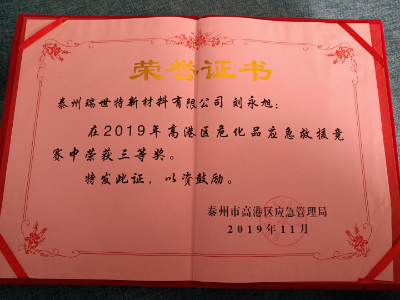 荣誉证书
泰州瑞世特新材料有限公司 刘永旭：
在2019年高港区危化品应急救援竞
赛中荣获三等奖。
特发此证，以资鼓励。
泰州市高港区应急管理局
2019年11月